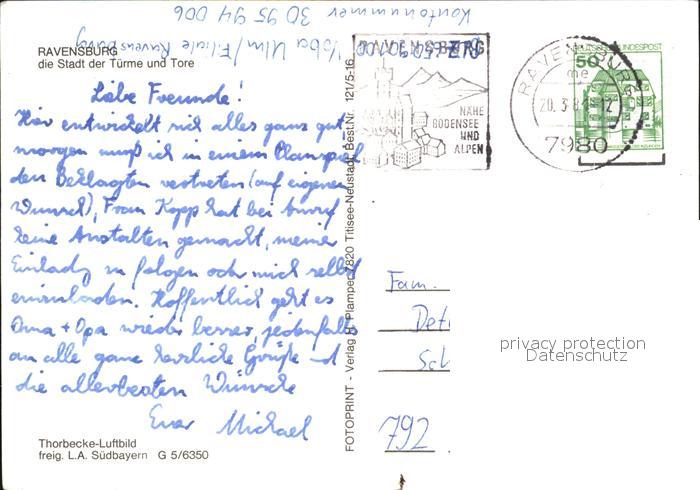 Kontonummer 30 95 94 006
Voba Ulm/Filiale Ravensburg
RAVENSBURG
die Stadt der Türme und Tore
Liebe Freunde!
Hier entwickelt sich alles ganz gut
morgen muß ich in einem Planspiel
den Beklagten vertreten (auf eigenen
Wunsch), Frau Kopp hat bei Anruf
keine Anstalten gemacht, meiner
Einladg zu folgen oder mich selbst
einzuladen. Hoffentlich geht es
Oma + Opa wieder besser, jedenfalls
an alle ganz herzliche Grüße und
die allerbesten Wünsche
Euer Michael
Thorbecke-Luftbild
freig. L.A. Südbayern G 5/6350
FOTOPRINT - Verlag Plamper, 7820 Titisee-Neustadt, Best.Nr. 121/5-16
RAVENSBURG
NÄHE
BODENSEE
UND
ALPEN
RAVENSBURG
20.3.81
7980
DEUTSCHE BUNDESPOST
50
Fam.
Det
Sch
792
privacy protection
Datenschutz